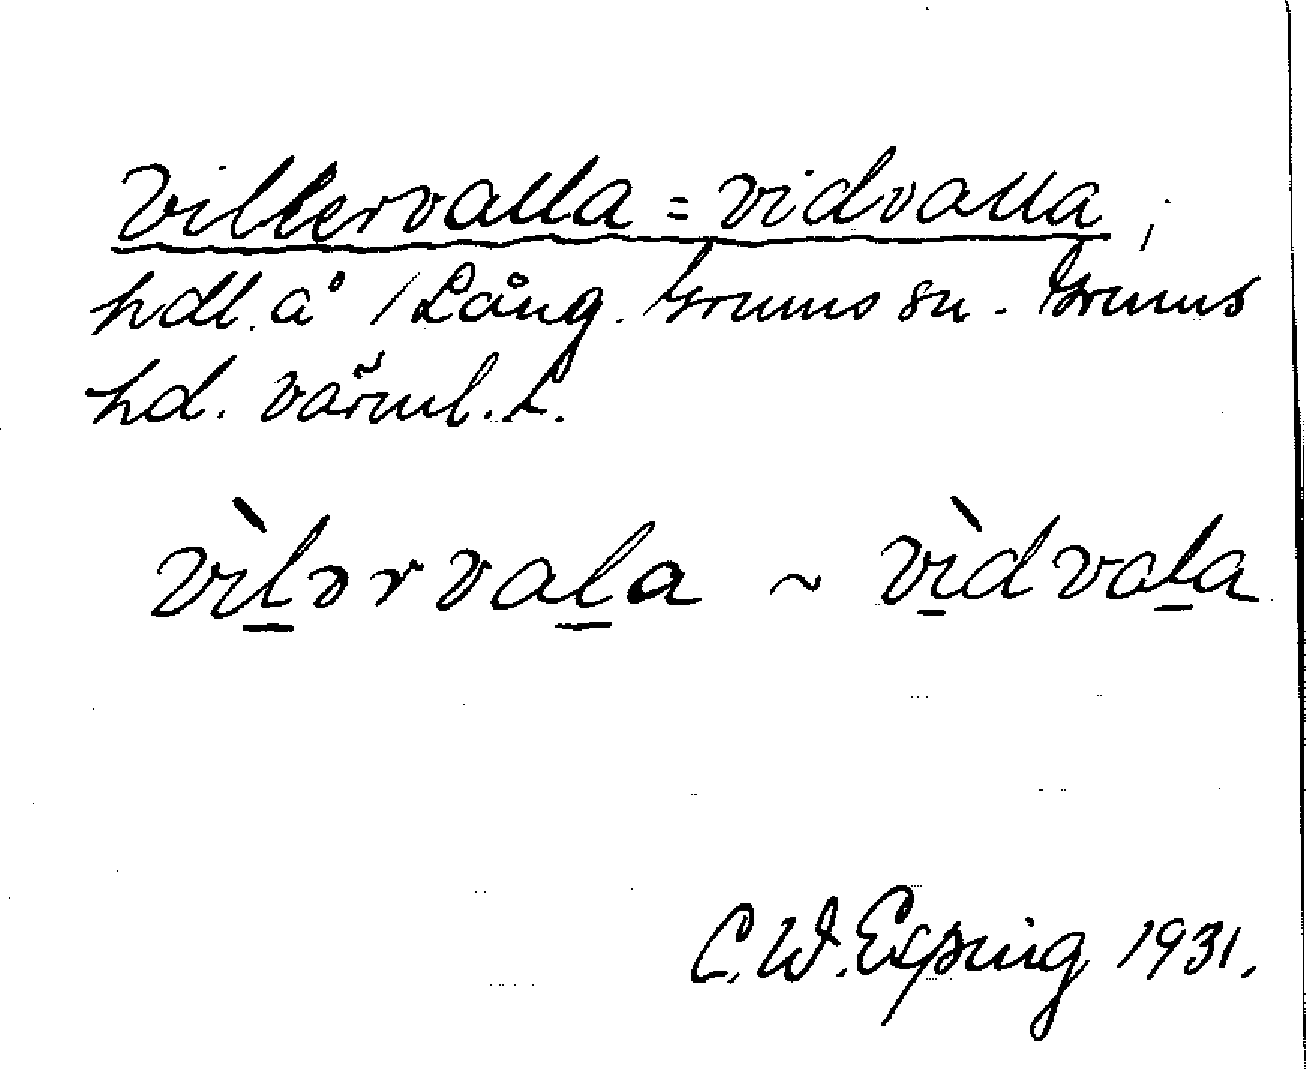 Villervalla = vidvalla ;
hdl. å / Lång. Grums sn. Grums
hd. Värml. L.
vìlərvala ~ vìdvala
C. W. Esping 1931.